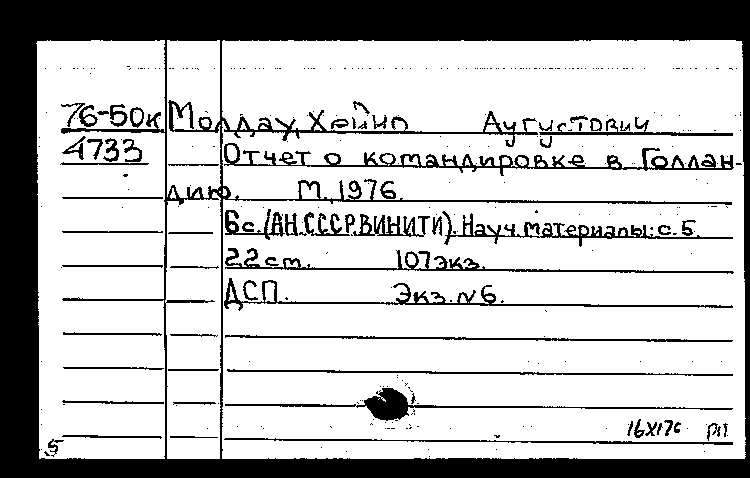 76-50к Молдау, Хейно Аугустович
4733 Отчет о командировке в Голлан-
дию. М., 1976.
6с. (АН СССР. ВИНИТИ). Науч. материалы: с. 5.
22 ст. 107 экз.
ДСП. Экз. N 6.
16 XI 76 РП
5